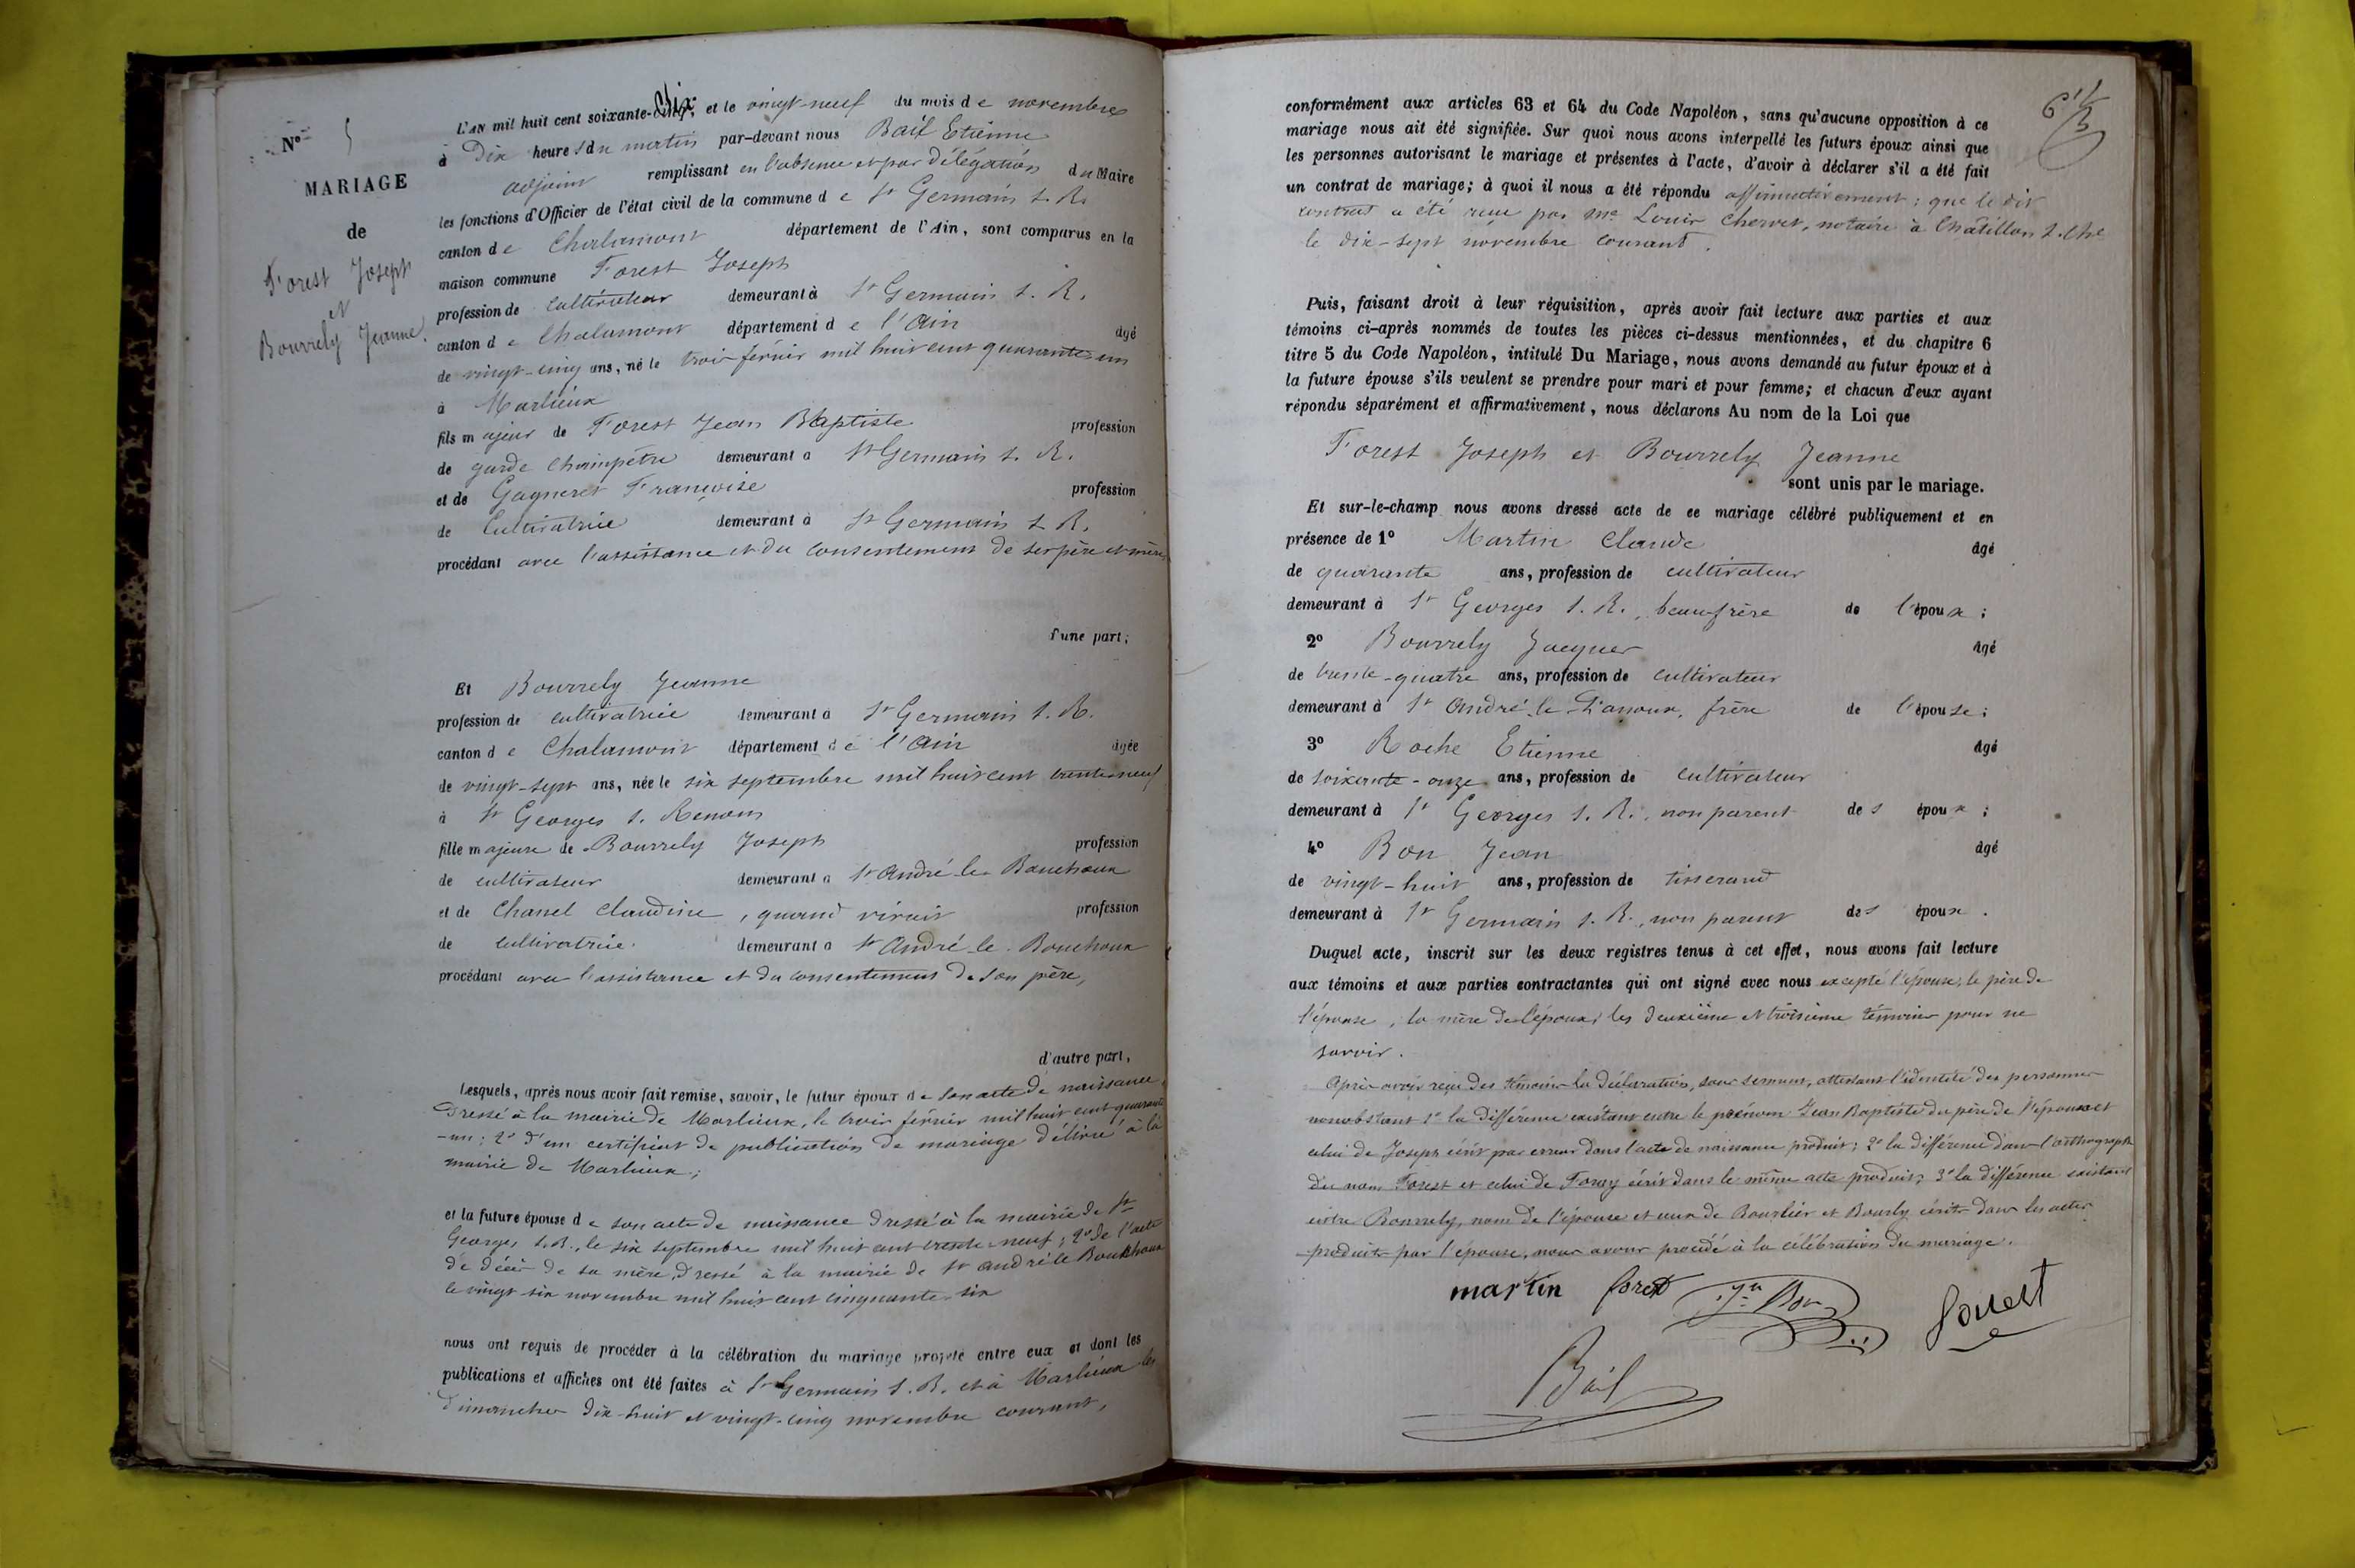 N° 5
MARIAGE
de
Forest Joseph
et
Bourrely Jeanne.
L'AN mil huit cent soixante-six, et le vingt-neuf du mois de novembre
à Dix heures du matin par-devant nous Baif Etienne
adjoint remplissant en l'absence et par délégation du Maire
les fonctions d'Officier de l'état civil de la commune de St Germain s. R.
canton de Chalamont département de l'Ain, sont comparus en la
maison commune Forest Joseph
profession de cultivateur demeurant à St Germain s. R.
canton de Chalamont département de l'Ain âgé
de vingt-cinq ans, né le trois février mil huit cent quarante-un
à Marlieux
fils majeur de Forest Jean Baptiste profession
de garde champêtre demeurant à St Germain s. R.
et de Gagneret Françoise profession
de Cultivatrice demeurant à St Germain s. R.
procédant avec l'assistance et du consentement de ses père et mère,
d'une part;
Et Bourrely Jeanne
profession de cultivatrice demeurant à St Germain s. R.
canton de Chalamont département de l'Ain âgée
de vingt-sept ans, née le six septembre mil huit cent trente-neuf
à St Georges s. Renom
fille majeure de Bourrely Joseph profession
de cultivateur demeurant à St André le Bouchoux
et de Chanel Claudine, quand vivait profession
de cultivatrice demeurant à St André le Bouchoux
procédant avec l'assistance et du consentement de son père,
d'autre part,
Lesquels, après nous avoir fait remise, savoir, le futur époux de son acte de naissance
dressé à la mairie de Marlieux, le trois février mil huit cent quarante
-un; 2° d'un certificat de publication de mariage délivré à la
mairie de Marlieux;
et la future épouse de son acte de naissance dressé à la mairie de St
Georges s. R., le six septembre mil huit cent trente-neuf; 2° de l'acte
de décès de sa mère, dressé à la mairie de St André le Bouchoux
le vingt six novembre mil huit cent cinquante-six
nous ont requis de procéder à la célébration du mariage projeté entre eux et dont les
publications et affiches ont été faites à St Germain s. R. et à Marlieux les
Dimanches dix-huit et vingt-cinq novembre courant,
conformément aux articles 63 et 64 du Code Napoléon, sans qu'aucune opposition à ce
mariage nous ait été signifiée. Sur quoi nous avons interpellé les futurs époux ainsi que
les personnes autorisant le mariage et présentes à l'acte, d'avoir à déclarer s'il a été fait
un contrat de mariage; à quoi il nous a été répondu affirmativement; que le dit
contrat a été reçu par Me Louis Chervet, notaire à Châtillon s. Che
le dix-sept novembre courant.
Puis, faisant droit à leur réquisition, après avoir fait lecture aux parties et aux
témoins ci-après nommés de toutes les pièces ci-dessus mentionnées, et du chapitre 6
titre 5 du Code Napoléon, intitulé Du Mariage, nous avons demandé au futur époux et à
la future épouse s'ils veulent se prendre pour mari et pour femme; et chacun d'eux ayant
répondu séparément et affirmativement, nous déclarons Au nom de la Loi que
Forest Joseph et Bourrely Jeanne
sont unis par le mariage.
Et sur-le-champ nous avons dressé acte de ce mariage célébré publiquement et en
présence de 1° Martin Claude âgé
de quarante ans, profession de cultivateur
demeurant à St Georges s. R., beau-frère de l'époux;
2° Bourrely Jacques âgé
de trente-quatre ans, profession de cultivateur
demeurant à St André le Panoux, frère de l'épouse;
3° Roche Etienne âgé
de soixante-onze ans, profession de cultivateur
demeurant à St Georges s. R., non parent des époux;
4° Bon Jean âgé
de vingt-huit ans, profession de tisserand
demeurant à St Germain s. R., non parent des époux.
Duquel acte, inscrit sur les deux registres tenus à cet effet, nous avons fait lecture
aux témoins et aux parties contractantes qui ont signé avec nous excepté l'épouse, le père de
l'épouse, la mère de l'époux, les deuxième et troisième témoins pour ne
savoir.
Après avoir reçu des témoins la déclaration, sous serment, attestant l'identité des personnes
nonobstant 1° la différence existant entre le prénom Jean Baptiste du père de l'époux et
celui de Joseph écrit par erreur dans l'acte de naissance produit; 2° la différence dans l'orthographe
du nom Forest et celui de Foray écrit dans le même acte produit; 3° la différence existant
entre Bourrely, nom de l'épouse et ceux de Bourlier et Bourly écrits dans les actes
produits par l'épouse, nous avons procédé à la célébration du mariage.
martin foret Jn Bon forest
Baif